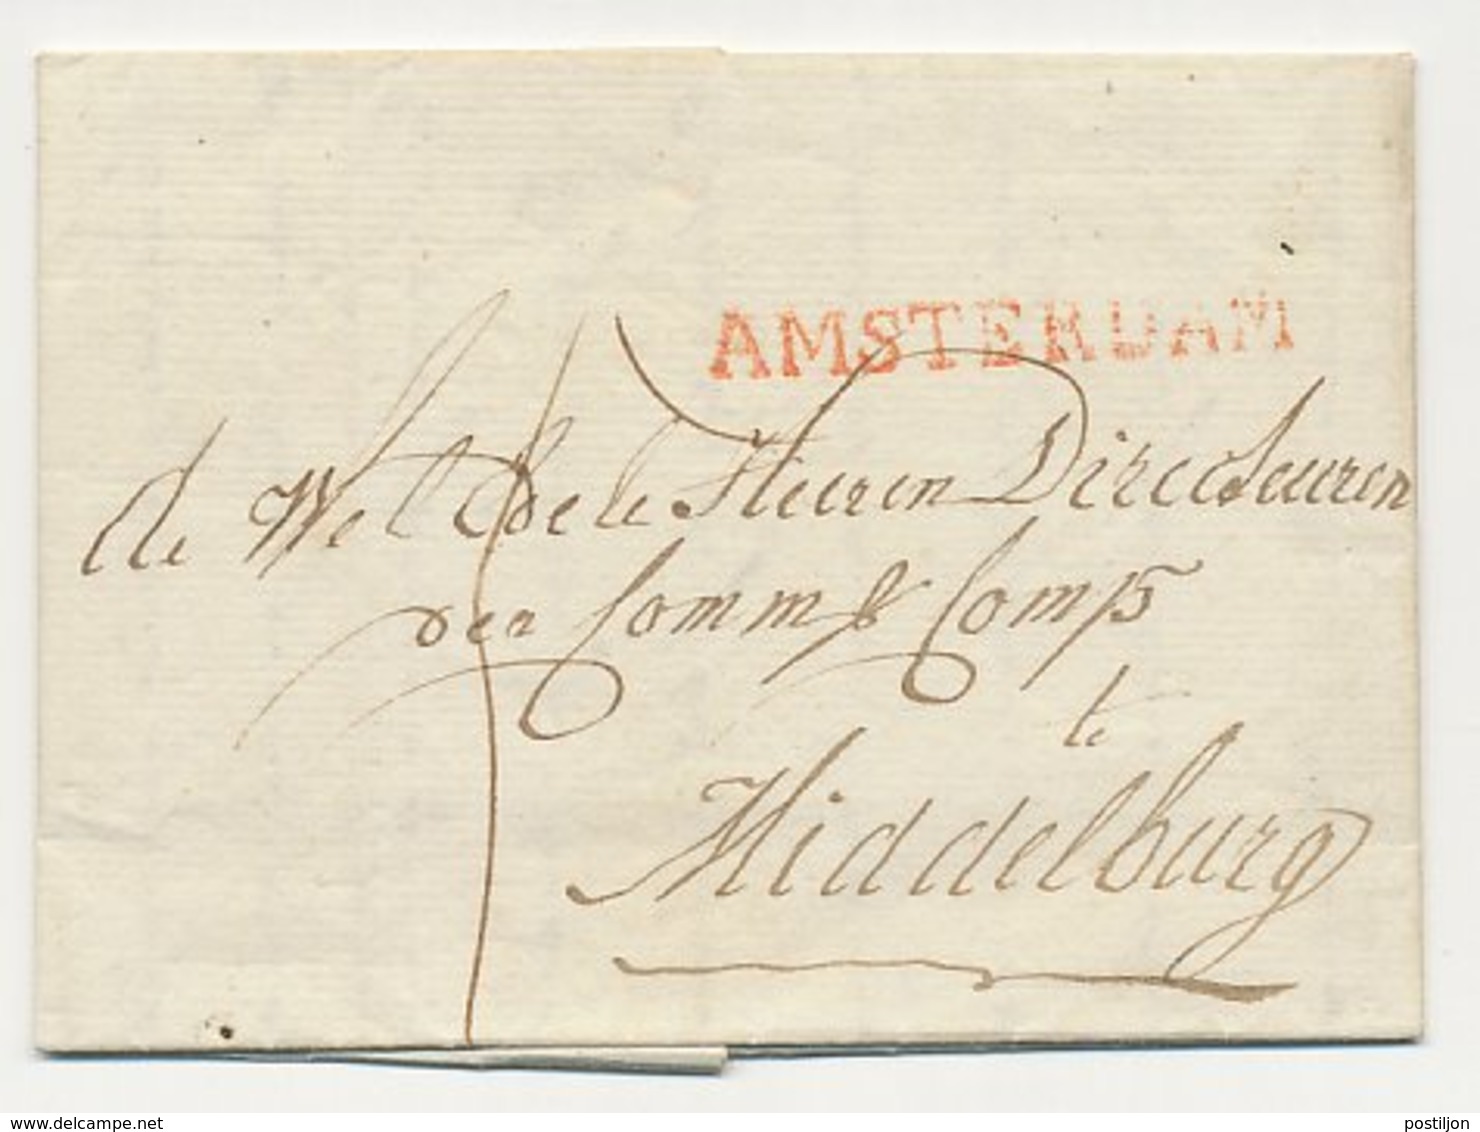 AMSTERDAM
de Wel Edele Heeren Directeuren
der Comm& Comp
te
Middelburg
www.delcampe.net
postiljon